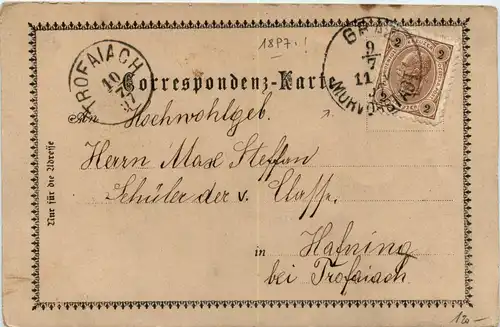 1897!
TROFAIACH
10
7
97
GRA
9
7
11
MURVORSTADT
2 2
2 2
Correspondenz-Karte
An Hochwohlgeb.
Herrn Max Steffan
Schüler der V. Classe
Nur für die Adresse
in Hafning
bei Trofaiach.
120-